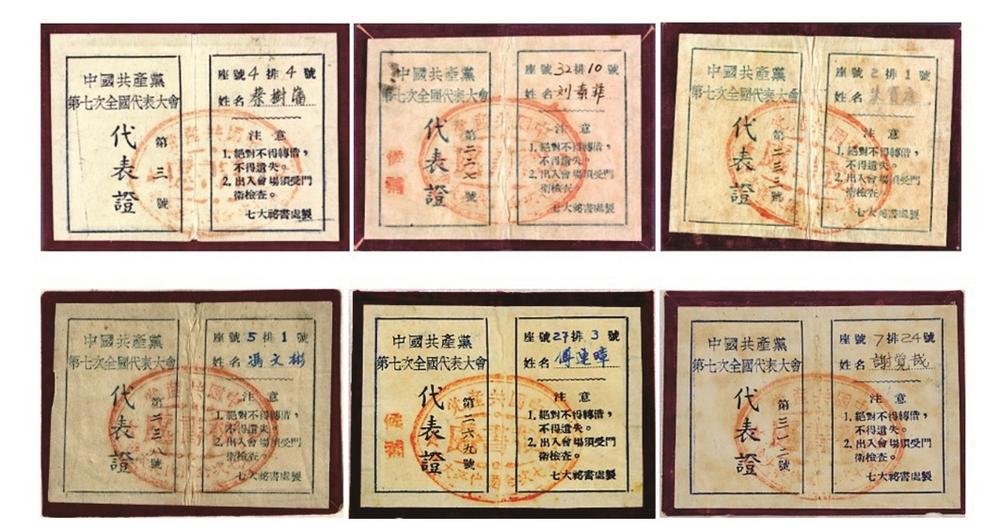 中國共產黨
第七次全國代表大會
代表證
第三號
座號4排4號
姓名 蔡樹藩
注意
1. 絕對不得轉借，
不得遺失。
2. 出入會場須受門
衛檢查。
七大祕書處製
中國共產黨
第七次全國代表大會
代表證
第二二七號
候補
座號32排10號
姓名 刘
注意
1. 絕對不得轉借，
不得遺失。
2. 出入會場須受門
衛檢查。
七大祕書處製
中國共產黨
第七次全國代表大會
代表證
第二三二號
座號2排1號
姓名
注意
1. 絕對不得轉借，
不得遺失。
2. 出入會場須受門
衛檢查。
七大祕書處製
中國共產黨
第七次全國代表大會
代表證
第二三八號
座號5排1號
姓名 馮文彬
注意
1. 絕對不得轉借，
不得遺失。
2. 出入會場須受門
衛檢查。
七大祕書處製
中國共產黨
第七次全國代表大會
代表證
第二六九號
候補
座號27排3號
姓名 傅連暲
注意
1. 絕對不得轉借，
不得遺失。
2. 出入會場須受門
衛檢查。
七大祕書處製
中國共產黨
第七次全國代表大會
代表證
第三一二號
座號7排24號
姓名 謝覚哉
注意
1. 絕對不得轉借，
不得遺失。
2. 出入會場須受門
衛檢查。
七大祕書處製